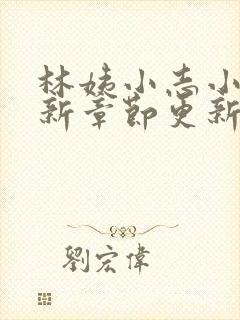 林姨小志小
新章節更新
劉宏偉